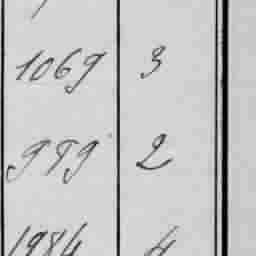 1069 3
979 2
1984 4